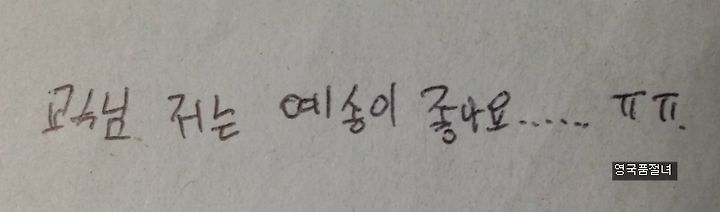 교수님 저는 예송이 좋아요...... ㅠㅠ.
영국품절녀